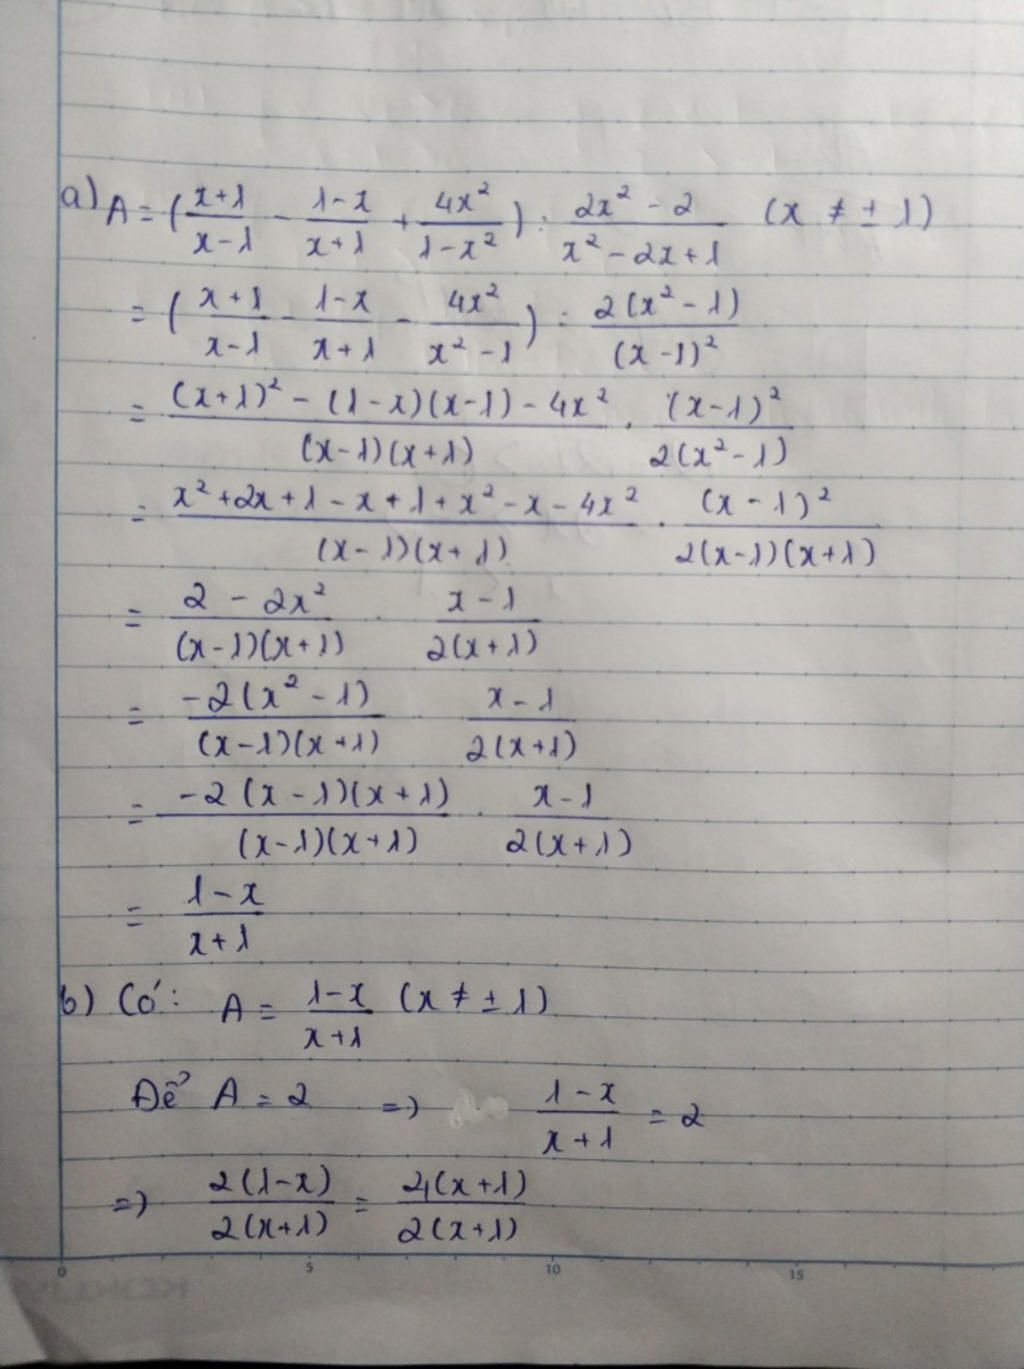 a) A = (\frac{x+1}{x-1} - \frac{1-x}{x+1} + \frac{4x^2}{1-x^2}) : \frac{2x^2-2}{x^2-2x+1} (x ≠ ±1)
= (\frac{x+1}{x-1} - \frac{1-x}{x+1} - \frac{4x^2}{x^2-1}) : \frac{2(x^2-1)}{(x-1)^2}
= \frac{(x+1)^2 - (1-x)(x-1) - 4x^2}{(x-1)(x+1)} . \frac{(x-1)^2}{2(x^2-1)}
= \frac{x^2+2x+1-x+1+x^2-x-4x^2}{(x-1)(x+1)} . \frac{(x-1)^2}{2(x-1)(x+1)}
= \frac{2-2x^2}{(x-1)(x+1)} . \frac{x-1}{2(x+1)}
= \frac{-2(x^2-1)}{(x-1)(x+1)} . \frac{x-1}{2(x+1)}
= \frac{-2(x-1)(x+1)}{(x-1)(x+1)} . \frac{x-1}{2(x+1)}
= \frac{1-x}{x+1}
b) Có: A = \frac{1-x}{x+1} (x ≠ ±1)
Để A = 2 => \frac{1-x}{x+1} = 2
=> \frac{2(1-x)}{2(x+1)} = \frac{4(x+1)}{2(x+1)}
0 5 10 15